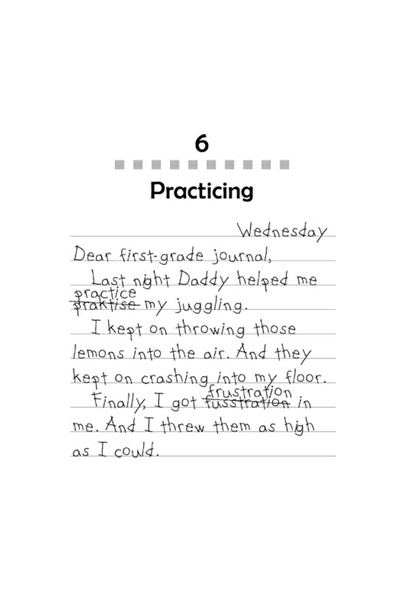 6
Practicing
Wednesday
Dear first-grade journal,
Last night Daddy helped me
practice
praktise my juggling.
I kept on throwing those
lemons into the air. And they
kept on crashing into my floor.
frustration
Finally, I got fusstration in
me. And I threw them as high
as I could.